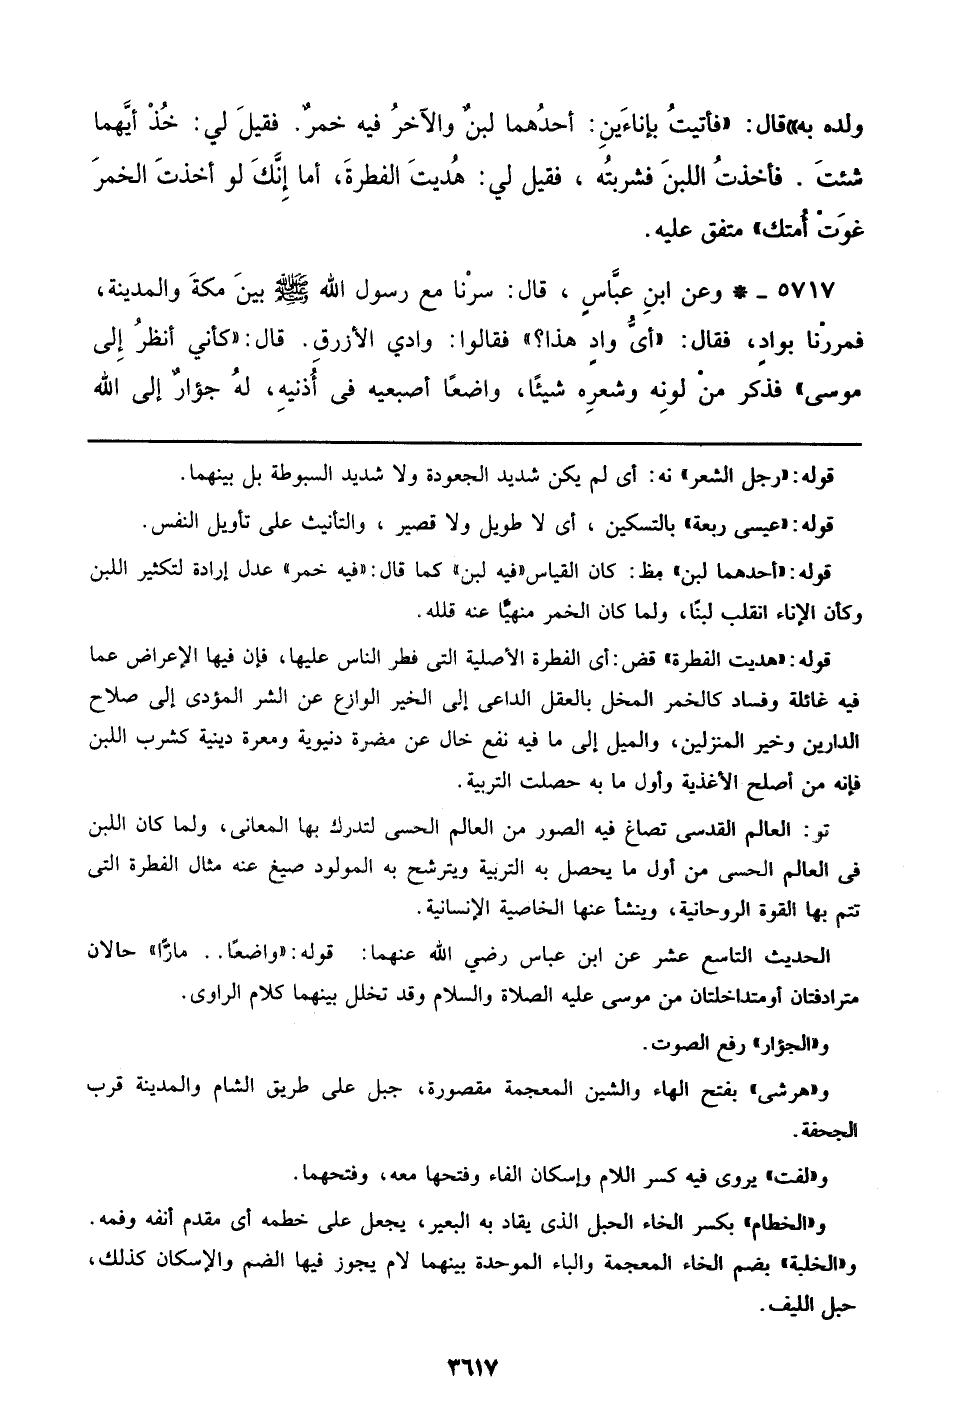 ولده به»قال: «فأتيتُ بإناءَينِ: أحدُهما لبنٌ والآخرُ فيه خمرٌ. فقيلَ لي: خُذْ أيَّهما
شئتَ . فأخذتُ اللبنَ فشربتُه ، فقيل لي: هُديتَ الفطرةَ، أما إِنَّكَ لو أخذتَ الخمرَ
غوَتْ أُمتك» متفق عليه.
٥٧١٧ ـ * وعن ابنِ عبَّاسٍ ، قال: سرْنا مع رسول الله ﷺ بينَ مكةَ والمدينة،
فمررْنا بوادٍ، فقال: «أىُّ وادٍ هذا؟» فقالوا: وادي الأزرقِ. قال:«كأني أنظرُ إِلى
موسى» فذكر منْ لونِه وشعرِه شيئًا، واضعًا أصبعيه فى أُذنيهِ، لهُ جؤارٌ إلى الله
قوله:«رجل الشعر» نه: أى لم يكن شديد الجعودة ولا شديد السبوطة بل بينهما.
قوله:«عيسى ربعة» بالتسكين ، أى لا طويل ولا قصير ، والتأنيث على تأويل النفس.
قوله:«أحدهما لبن» مظ: كان القياس«فيه لبن» كما قال:«فيه خمر» عدل إرادة لتكثير اللبن
وكأن الإناء انقلب لبنًا، ولما كان الخمر منهيًّا عنه قلله.
قوله:«هديت الفطرة» قض:أى الفطرة الأصلية التى فطر الناس عليها، فإن فيها الإعراض عما
فيه غائلة وفساد كالخمر المخل بالعقل الداعى إلى الخير الوازع عن الشر المؤدى إلى صلاح
الدارين وخير المنزلين، والميل إلى ما فيه نفع خال عن مضرة دنيوية ومعرة دينية كشرب اللبن
فإنه من أصلح الأغذية وأول ما به حصلت التربية.
تو: العالم القدسى تصاغ فيه الصور من العالم الحسى لتدرك بها المعانى، ولما كان اللبن
فى العالم الحسى من أول ما يحصل به التربية ويترشح به المولود صيغ عنه مثال الفطرة التى
تتم بها القوة الروحانية، وينشأ عنها الخاصية الإنسانية.
الحديث التاسع عشر عن ابن عباس رضي الله عنهما: قوله:«واضعًا.. مارًّا» حالان
مترادفتان أومتداخلتان من موسى عليه الصلاة والسلام وقد تخلل بينهما كلام الراوى.
و«الجؤار» رفع الصوت.
و«هرشى» بفتح الهاء والشين المعجمة مقصورة، جبل على طريق الشام والمدينة قرب
الجحفة.
و«لفت» يروى فيه كسر اللام وإسكان الفاء وفتحها معه، وفتحهما.
و«الخطام» بكسر الخاء الحبل الذى يقاد به البعير، يجعل على خطمه أى مقدم أنفه وفمه.
و«الخلبة» بضم الخاء المعجمة والباء الموحدة بينهما لام يجوز فيها الضم والإسكان كذلك،
حبل الليف.
٣٦١٧